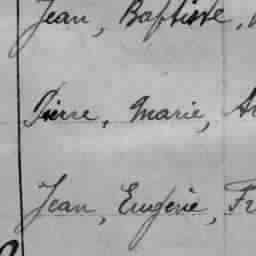 Jean, Baptiste,
Pierre, Marie,
Jean, Eugène, Fr